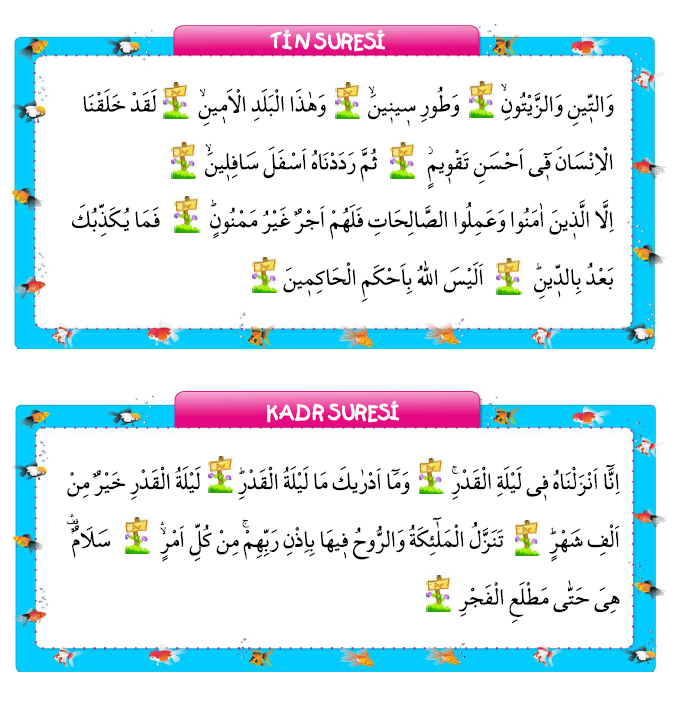 TİN SURESİ
وَالتّ۪ينِ وَالزَّيْتُونِۙ وَطُورِ س۪ين۪ينَۙ وَهٰذَا الْبَلَدِ الْاَم۪ينِۙ لَقَدْ خَلَقْنَا
الْاِنْسَانَ ف۪ٓي اَحْسَنِ تَقْو۪يمٍۘ ثُمَّ رَدَدْنَاهُ اَسْفَلَ سَافِل۪ينَۙ
اِلَّا الَّذ۪ينَ اٰمَنُوا وَعَمِلُوا الصَّالِحَاتِ فَلَهُمْ اَجْرٌ غَيْرُ مَمْنُونٍۜ فَمَا يُكَذِّبُكَ
بَعْدُ بِالدّ۪ينِۜ اَلَيْسَ اللّٰهُ بِاَحْكَمِ الْحَاكِم۪ينَ
KADR SURESİ
اِنَّٓا اَنْزَلْنَاهُ ف۪ي لَيْلَةِ الْقَدْرِۚ وَمَٓا اَدْرٰيكَ مَا لَيْلَةُ الْقَدْرِۜ لَيْلَةُ الْقَدْرِ خَيْرٌ مِنْ
اَلْفِ شَهْرٍۜ تَنَزَّلُ الْمَلٰٓئِكَةُ وَالرُّوحُ ف۪يهَا بِاِذْنِ رَبِّهِمْۚ مِنْ كُلِّ اَمْرٍۙۛ سَلَامٌ۠ۛ
هِيَ حَتّٰى مَطْلَعِ الْفَجْرِ